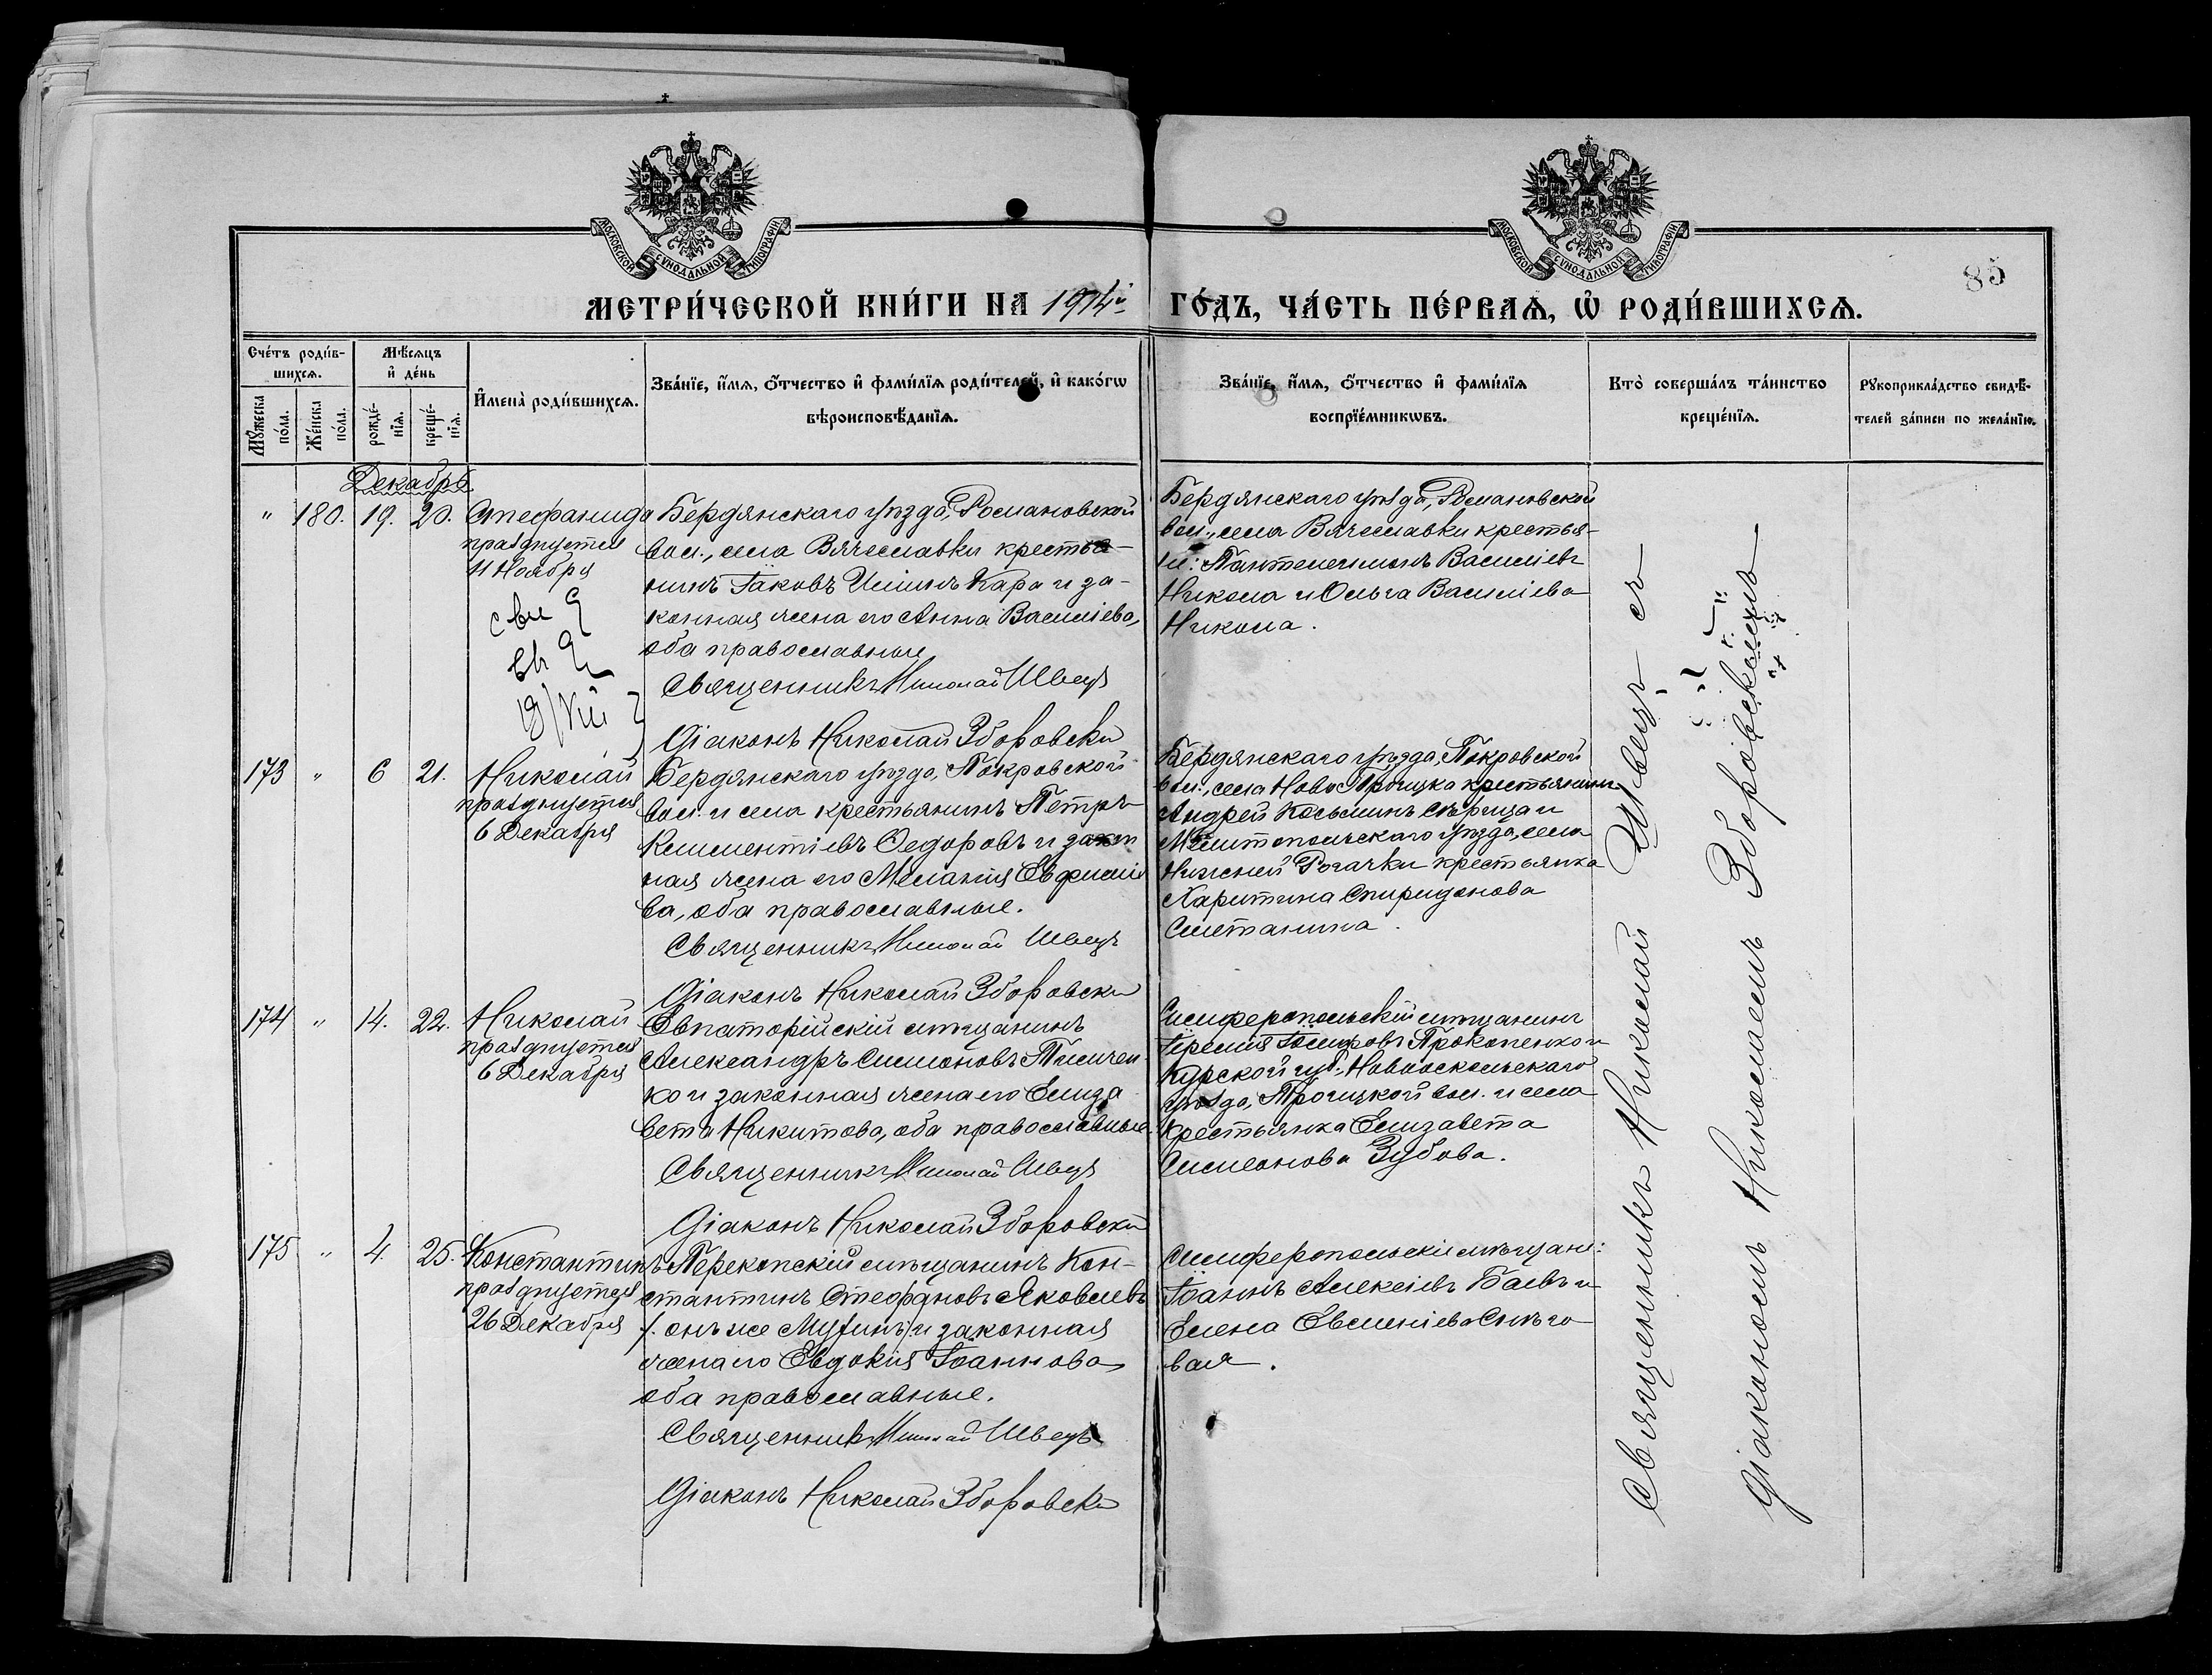 МОСКОВСКОЙ СѴНОДАЛЬНОЙ ТИПОГРАФІИ
МОСКОВСКОЙ СѴНОДАЛЬНОЙ ТИПОГРАФІИ
85
МЕТРИ́ЧЕСКОЙ КНИ́ГИ НА 1914й ГО́ДЪ, ЧА́СТЬ ПЕ́РВАЯ, Ѡ РОДИ́ВШИХСЯ.
Сче́тъ роди́в-
шихся.
Мꙋжеска по́ла.
Же́нска по́ла.
Мѣсяцъ
и де́нь
рожде́-
нїя.
креще́-
нїя.
Имена̀ роди́вшихся.
Зва́нїе, и́мя, ѻ́тчество и фами́лїя роди́телей, и како́гѡ
вѣроисповѣ́данїя.
Зва́нїе, и́мя, ѻ́тчество и фами́лїя
воспрїе́мникѡвъ.
Кто̀ соверша́лъ та́инство
креще́нїя.
Рꙋкоприкла́дство свидѣ́-
телей за́писи по жела́нїю.
Декабрь
" 180. 19. 20. Стефанида
празднуется
11 Ноября
Бердянскаго уѣзда, Романовской
вол., села Вячеславки крестья-
нинъ Іаковъ Кара и за-
конная жена его Анна Василіева,
оба православные
Священникъ Николай Швецъ
Діаконъ Николай Зборовскій
Бердянскаго уѣзда, Романовской
вол., села Вячеславки крестья-
не: Пантелеимонъ Василіевъ
Никола и Ольга Василіева
Никола.
173 " 6 21. Николай
празднуется
6 Декабря
Бердянскаго уѣзда, Покровской
вол. и села крестьянинъ Петръ
Климентіевъ Ѳедоровъ и закон
ная жена его Меланія Евфиміе
ва, оба православные.
Священникъ Николай Швецъ
Діаконъ Николай Зборовскій
Бердянскаго уѣзда, Покровской
вол., села Ново Троицка крестьянинъ
Андрей Косьминъ и
Мелитопольскаго уѣзда, села
Нижней Рогачки крестьянка
Харитина Спиридонова
Сметанина.
174 " 14. 22. Николай
празднуется
6 Декабря
Евпаторійскій мѣщанинъ
Александръ Симоновъ Тимчен
ко и законная жена его Елиза
вета Никитова, оба православные
Священникъ Николай Швецъ
Діаконъ Николай Зборовскій
Симферопольскій мѣщанинъ
Іеремія Іосифовъ Прокопенко и
Курской губ., Новооскольскаго
уѣзда, Троицкой вол. и села
крестьянка Елизавета
Симеонова Зубова.
175 " 4. 25. Константинъ
празднуется
26 Декабря
Перекопскій мѣщанинъ Кон-
стантинъ Стефановъ Яковлевъ
(онъ же) и законная
жена его Евдокія Іоаннова
оба православные.
Священникъ Николай Швецъ
Діаконъ Николай Зборовскій
Симферопольскіе мѣщане:
Іоаннъ Алексіевъ Баевъ и
Елена Евменіева Снѣго
вая.
Священникъ Николай Швецъ съ
Діакономъ Николаемъ Зборовскимъ